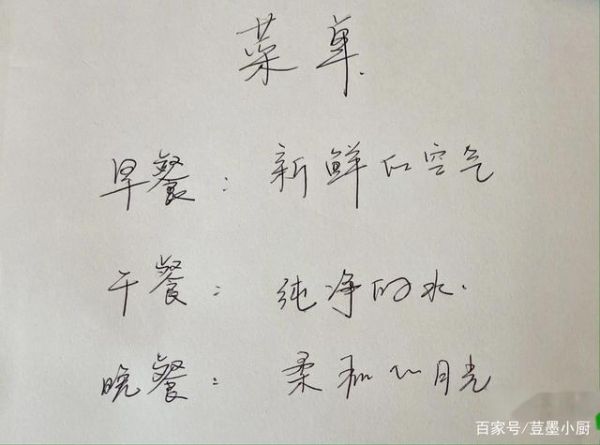 菜单
早餐：新鲜的空气
午餐：纯净的水.
晚餐：柔和的月光
百家号/荳墨小厨